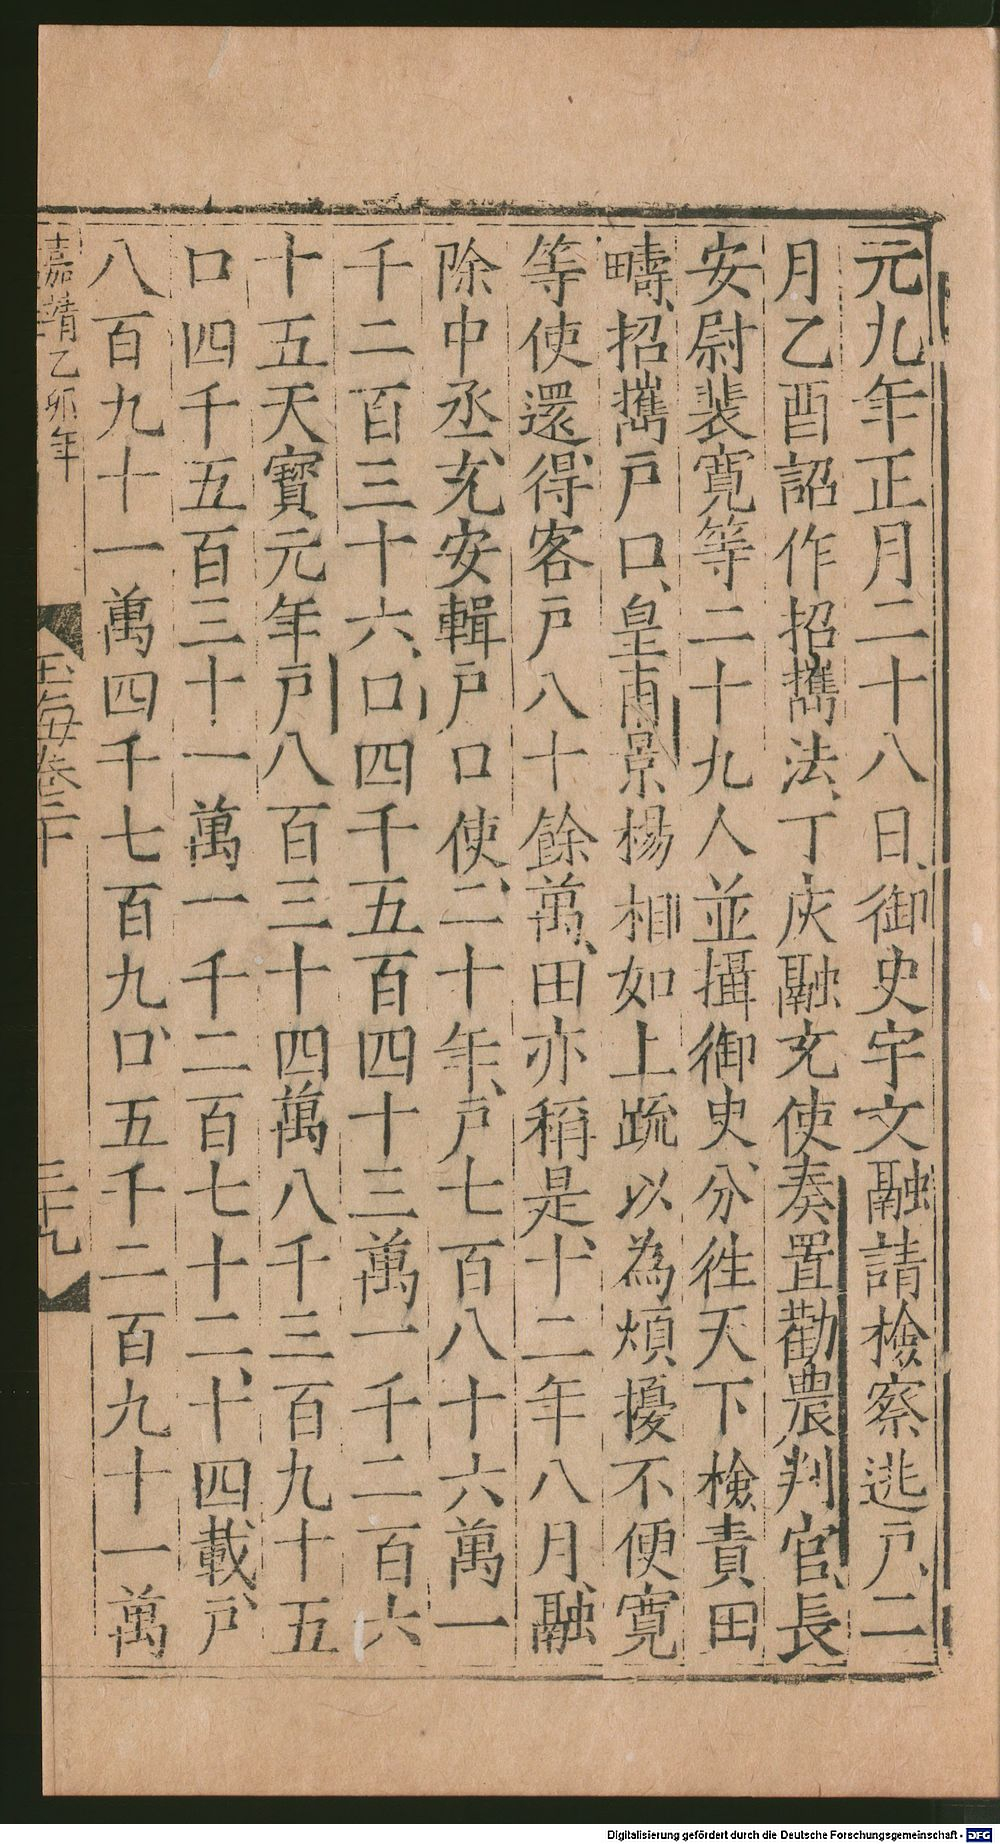 元九年正月二十八日御史宇文融請檢察逃戸二
月乙酉詔作招攜法丁亥融充使奏置勸農判官長
安尉裴寬等二十九人並攝御史分徃天下檢責田
疇招攜戸口皇甫景楊相如上疏以為煩擾不便寛
等使還得客戸八十餘萬田亦稱是十二年八月融
除中丞充安輯戸口使二十年戸七百八十六萬一
千二百三十六口四千五百四十三萬一千二百六
十五天寶元年戸八百三十四萬八千三百九十五
口四千五百三十一萬一千二百七十二十四載戸
八百九十一萬四千七百九口五千二百九十一萬
嘉靖乙卯年
玉海卷二十
三十九
Digitalisierung gefördert durch die Deutsche Forschungsgemeinschaft - DFG